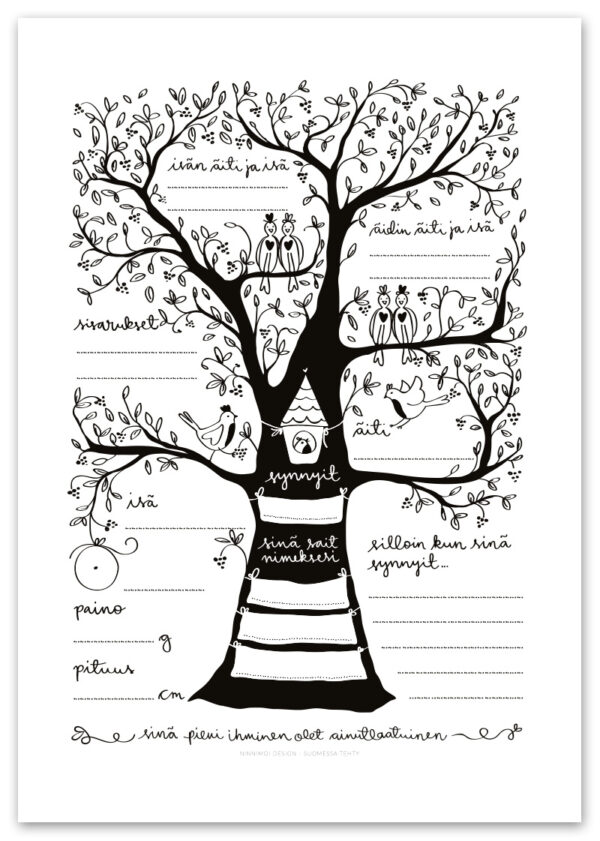 isän äiti ja isä
äidin äiti ja isä
sisarukset
äiti
synnyit
isä
sinä sait
nimeksesi
silloin kun sinä
synnyit...
paino
g
pituus
cm
sinä pieni ihminen olet ainutlaatuinen
NINNIMOI DESIGN - SUOMESSA TEHTY